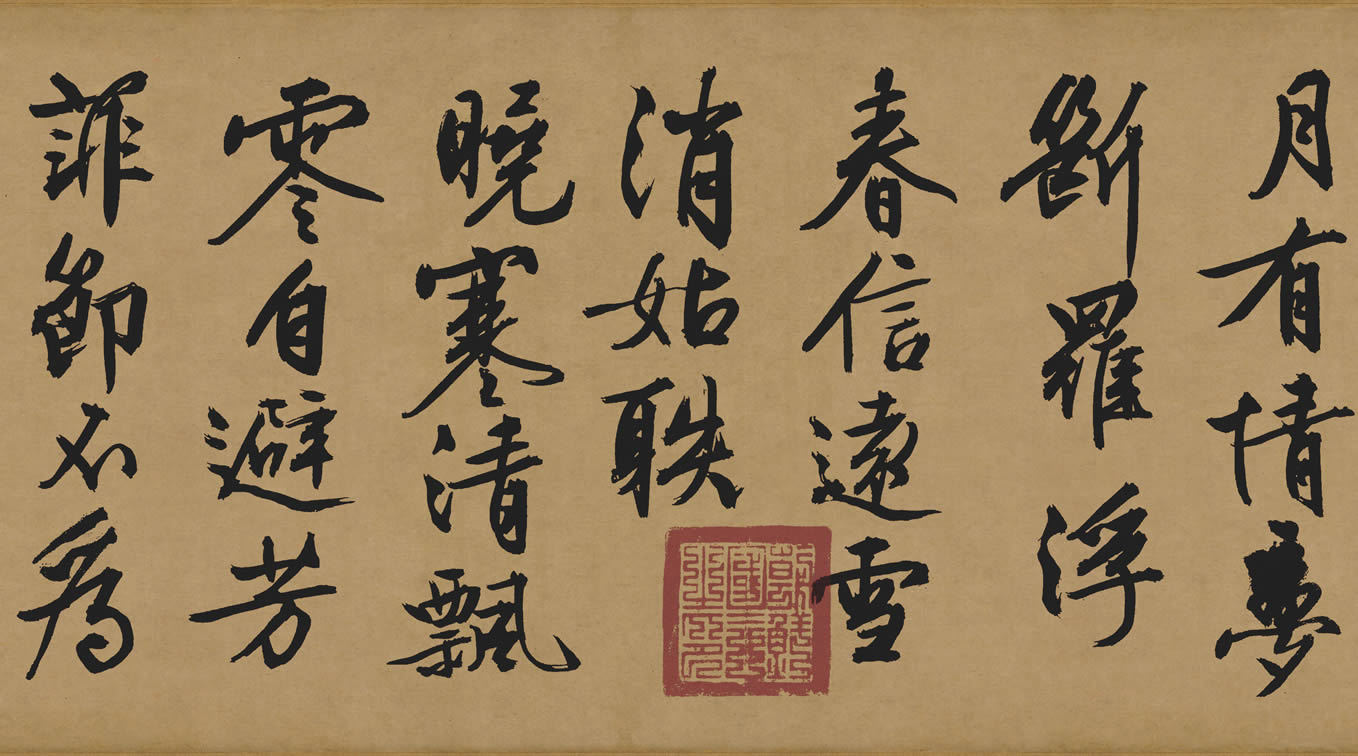 月有情夢
斷羅浮
春信遠雪
消姑䠶
曉寒清飄
零自避芳
菲節不為